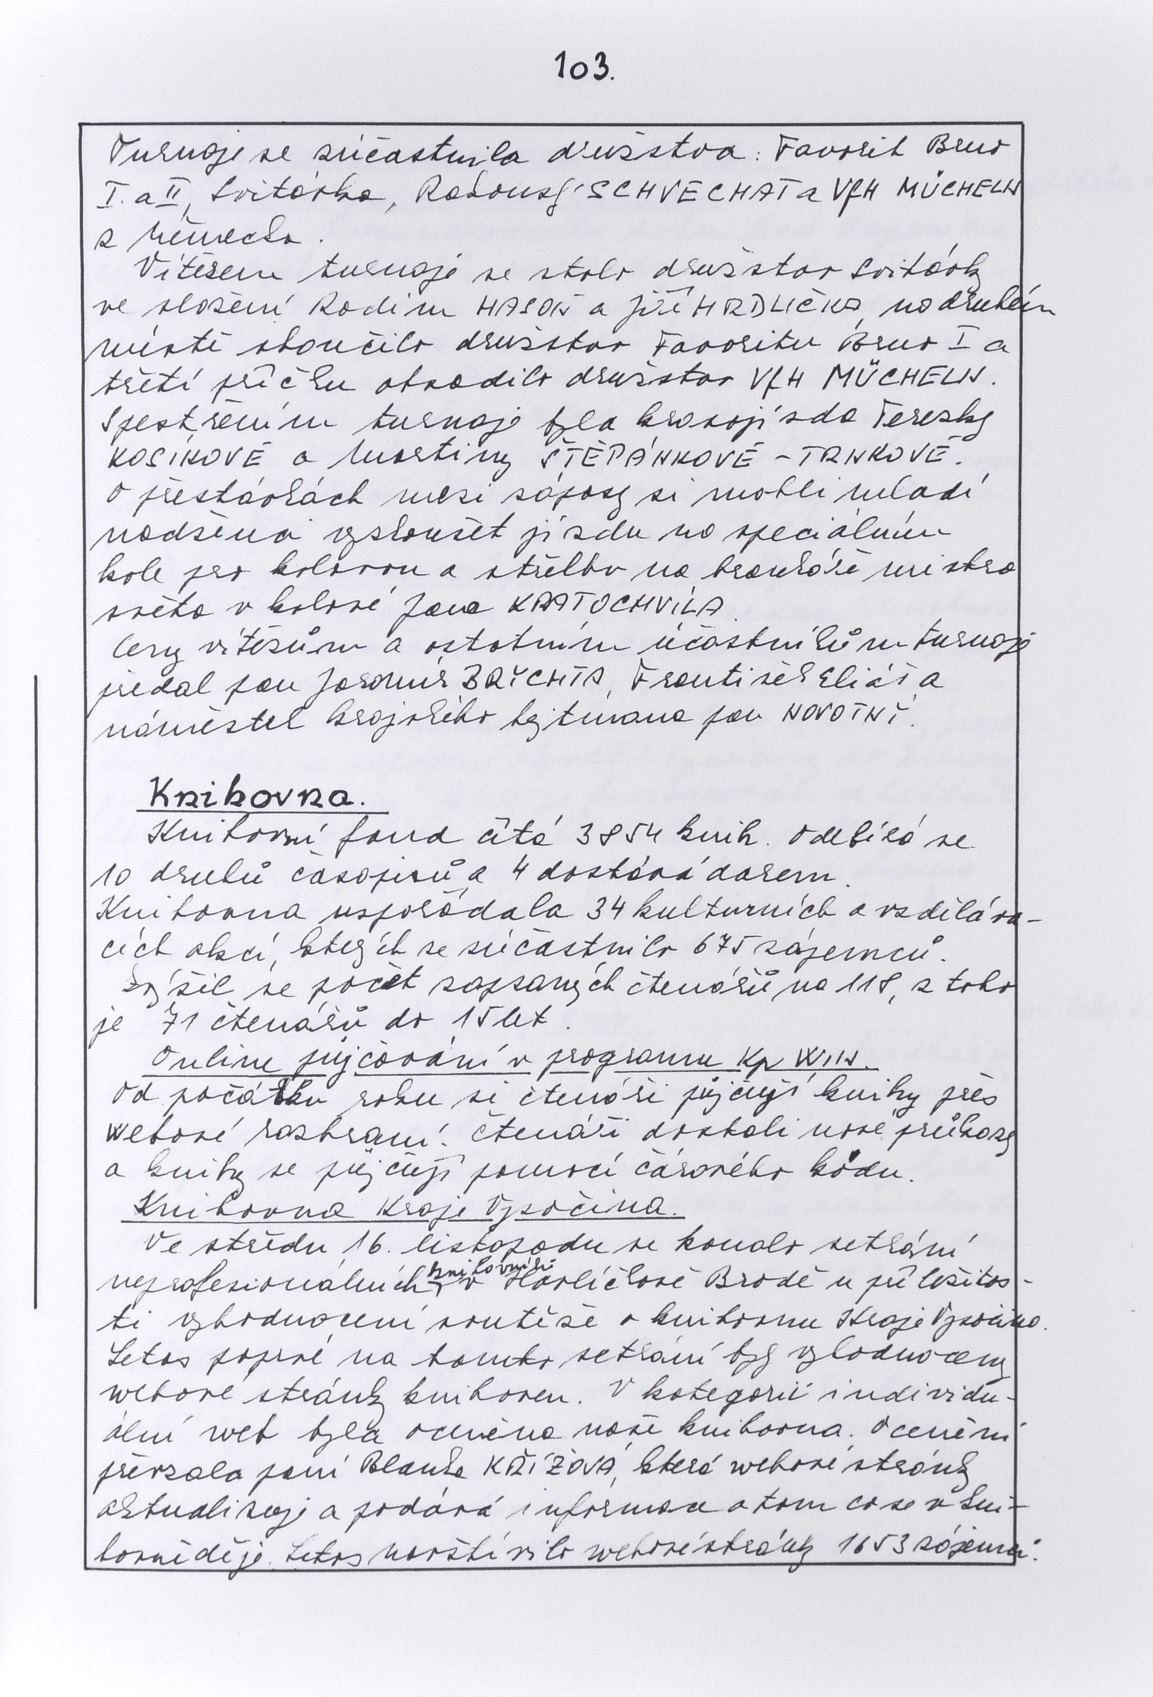 103.
Turnaje se zúčastnila družstva: Favorit Brno
I. a II, Svitávka, SCHVECHAT a VfH MÜCHELN
z Německa.
Vítězem turnaje se stalo družstvo Svitávky
ve složení Radim HASOŇ a Jiří HRDLIČKA, na druhém
místě skončilo družstvo Favoritu Brno I a
třetí příčku obsadilo družstvo VfH MÜCHELN.
Spestřením turnaje byla krasojízda Terezky
KOSÍKOVÉ a Martiny ŠTĚPÁNKOVÉ - TRNKOVÉ.
O přestávkách mezi zápasy si mohli mladí
nadšenci vyzkoušet jízdu na speciálním
kole pro kolovou a střelbu na brankáře mistra
světa v kolové Jana KRATOCHVÍLA
Ceny vítězům a ostatním účastníkům turnaje
předal pan Jaromír BRYCHTA, František Eliáš a
náměstek krajského hejtmana pan NOVOTNÝ.
Knihovna.
Knihovní fond čítá 3854 knih. Odebírá se
10 druhů časopisů a 4 dostává darem.
Knihovna uspořádala 34 kulturních a vzděláva-
cích akcí, kterých se zúčastnilo 675 zájemců.
Zvýšil se počet zapsaných čtenářů na 118, z toho
je 71 čtenářů do 15 let.
Online půjčování v programu Kp WIN.
Od počátku roku si čtenáři půjčují knihy přes
webové rozhraní. Čtenáři dostali nové průkazy
a knihy se půjčují pomocí čárového kódu.
Knihovna Kraje Vysočina.
Ve středu 16. listopadu se konalo setkání
neprofesionálních knihovníků v Havlíčkově Brodě u příležitos-
ti vyhodnocení soutěže o knihovnu Kraje Vysočina.
Letos poprvé na tomto setkání byly vyhodnoceny
webové stránky knihoven. V kategorii individu-
ální web byla oceněna naše knihovna. Ocenění
převzala paní Blanka KŘÍŽOVÁ, která webové stránky
aktualizuje a podává informace o tom co se v kni-
hovně děje. Letos navštívilo webové stránky 1653 zájemců.